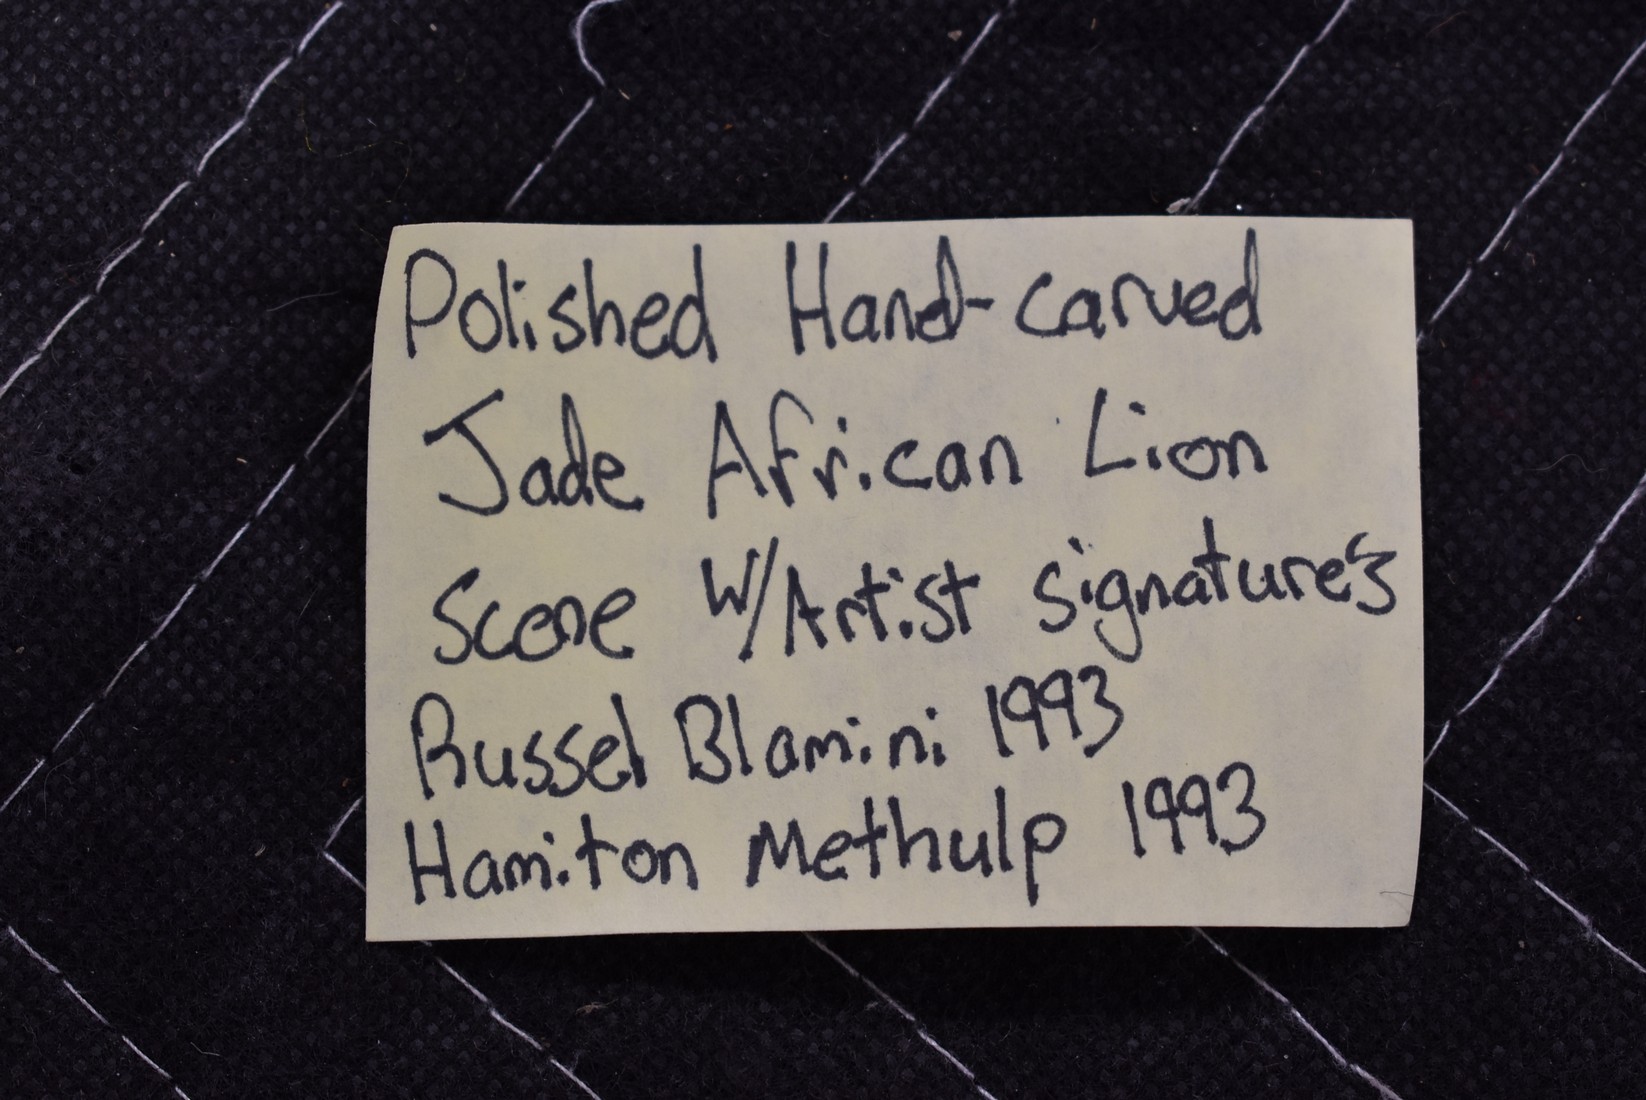 Polished Hand-carved
Jade African Lion
Scene W/Artist signature's
Russel Blamini 1993
Hamiton Methulp 1993